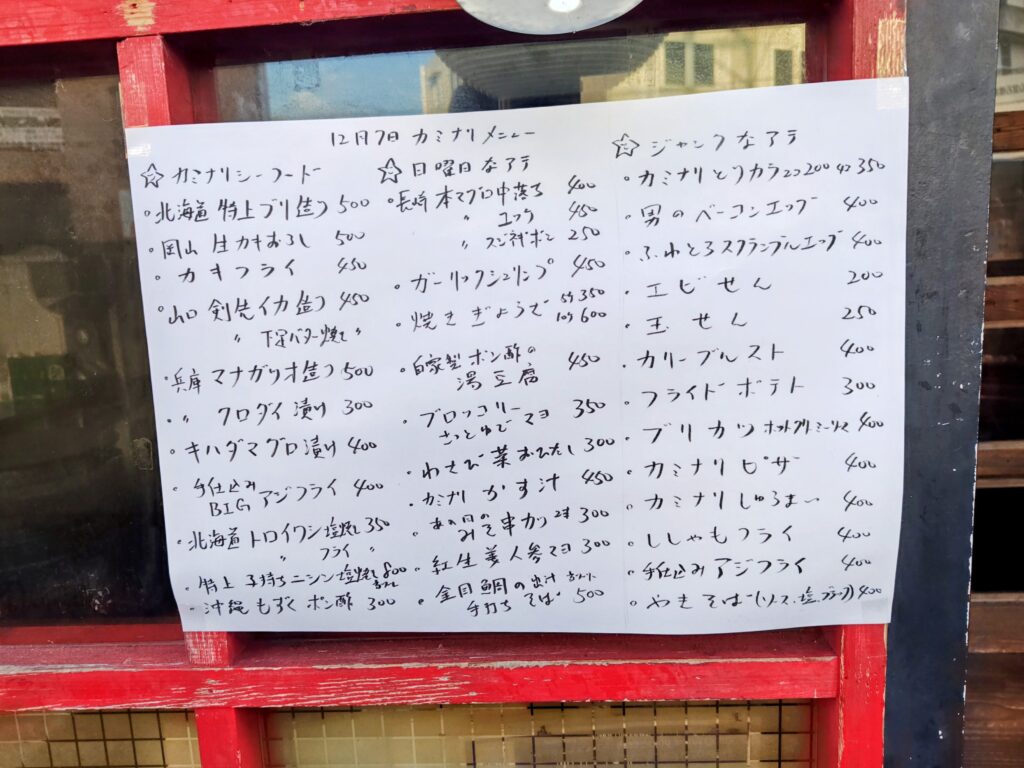 12月7日 カミナリメニュー
☆ カミナリシーフード
・北海道 特上ブリ造り 500
・岡山 生カキおろし 500
・カキフライ 450
・山口 剣先イカ造り 450
〃 下足バター焼き 〃
・兵庫 マナガツオ造り 500
・〃 クロダイ漬け 300
・キハダマグロ漬け 400
・手仕込み
BIG アジフライ 400
・北海道 トロイワシ塩焼き 350
〃 フライ 〃
・特上 子持ちニシン塩焼き 800
・沖縄 もずく ポン酢 300
☆ 日曜日なアテ
・長崎 本マグロ中落ち 400
〃 ユッケ 450
〃 スジネギポン 250
・ガーリックシュリンプ 450
・焼きぎょうざ 5ケ 350
10ケ 600
・自家製ポン酢の
湯豆腐 450
・ブロッコリー
さっとゆで マヨ 350
・わさび菜おひたし 300
・カミナリ かす汁 450
・あの日の
みそ串カツ 2本 300
・紅生姜人参マヨ 300
・金目鯛の出汁
手打ち そば 500
☆ ジャンクなアテ
・カミナリとりカラ 2コ 200 4コ 350
・男のベーコンエッグ 400
・ふわとろスクランブルエッグ 400
・エビせん 200
・玉せん 250
・カリーブルスト 400
・フライドポテト 300
・ブリカツ ホットクリーミーソース 400
・カミナリピザ 400
・カミナリしゅうまい 400
・ししゃもフライ 400
・手仕込みアジフライ 400
・やきそば(ソース、塩、ブラック) 400